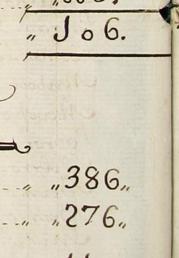 „ Jo6.
„ „386„
„ „276„